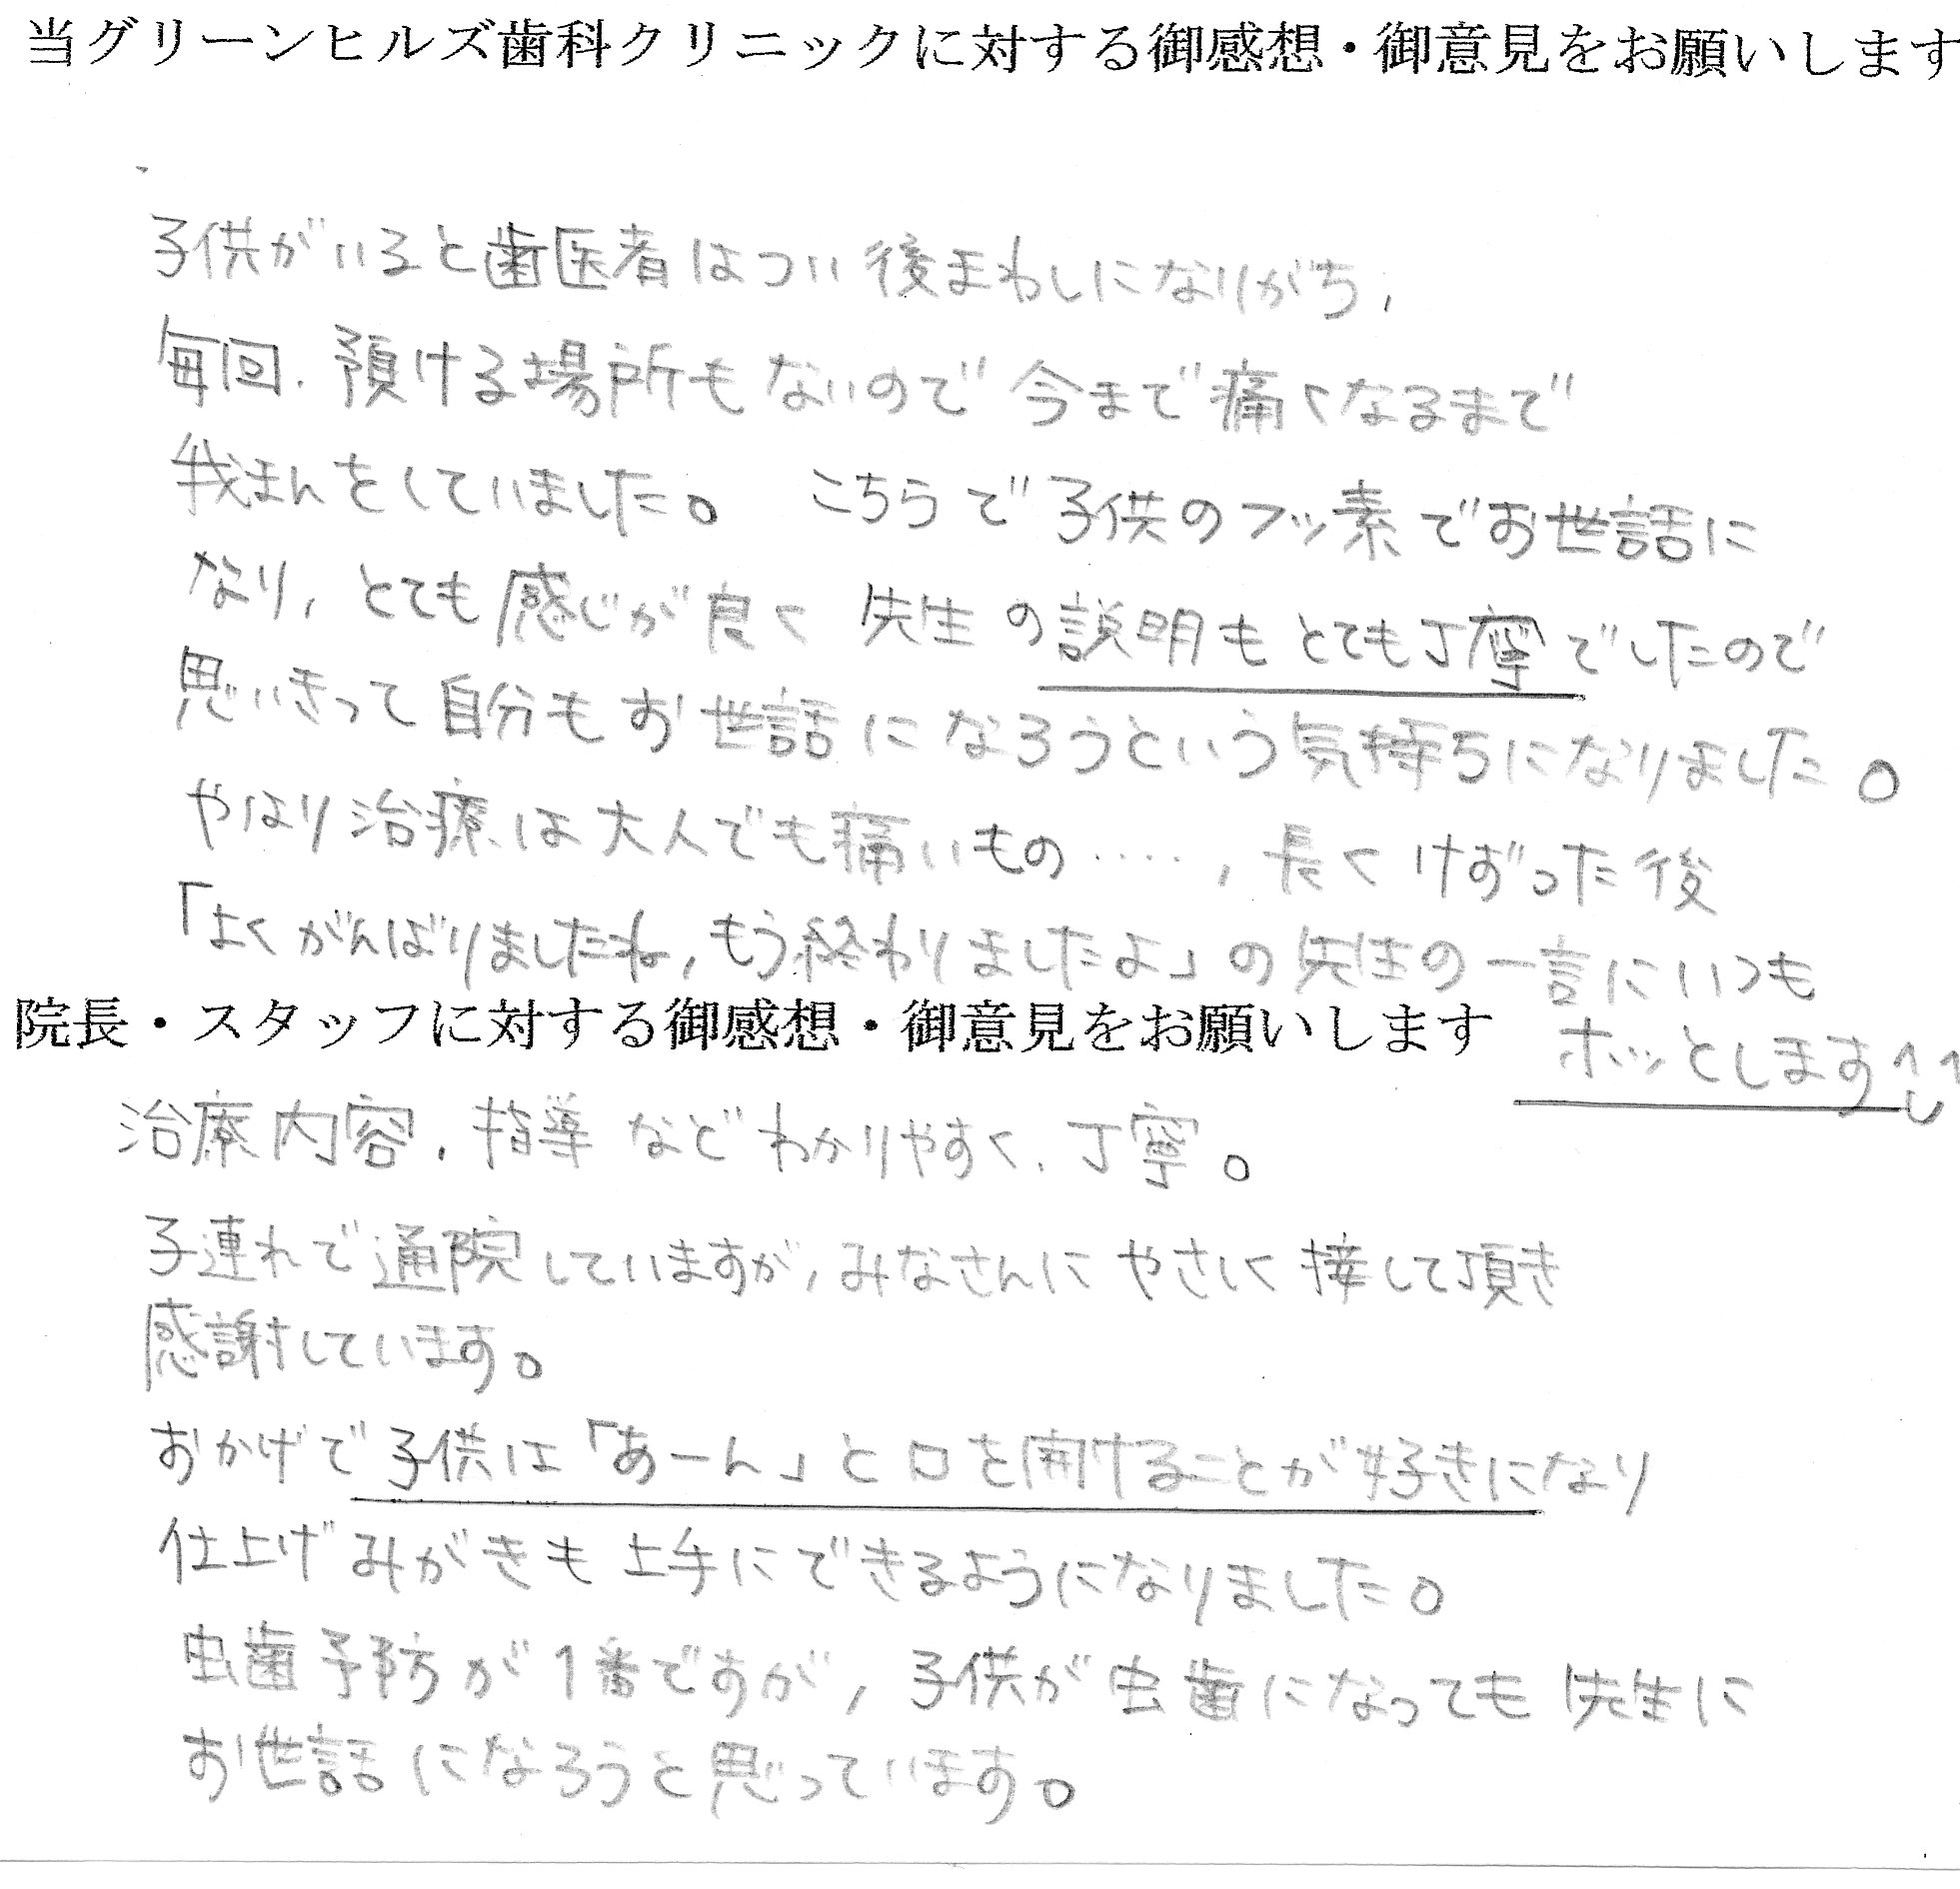 当グリーンヒルズ歯科クリニックに対する御感想・御意見をお願いします
子供がいると歯医者はつい後まわしになりがち、
毎回、預ける場所もないので今まで痛くなるまで
我まんをしていました。 こちらで子供のフッ素でお世話に
なり、とても感じが良く 先生の説明もとても丁寧でしたので
思いきって自分もお世話になろうという気持ちになりました。
やはり治療は大人でも痛いもの‥‥、長くけずった後
「よくがんばりましたね、もう終わりましたよ」の先生の一言にいつも
ホッとします^^
院長・スタッフに対する御感想・御意見をお願いします
治療内容、指導などわかりやすく、丁寧。
子連れで通院していますが、みなさんにやさしく接して頂き
感謝しています。
おかげで子供は「あーん」と口を開けることが好きになり
仕上げみがきも上手にできるようになりました。
虫歯予防が1番ですが、子供が虫歯になっても先生に
お世話になろうと思っています。